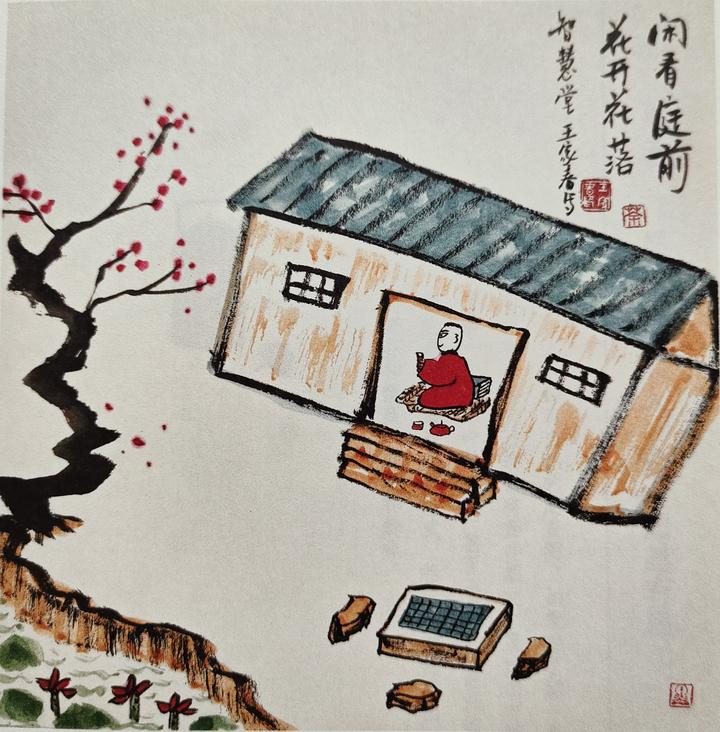 闲看庭前
花开花落
智慧堂王家春写